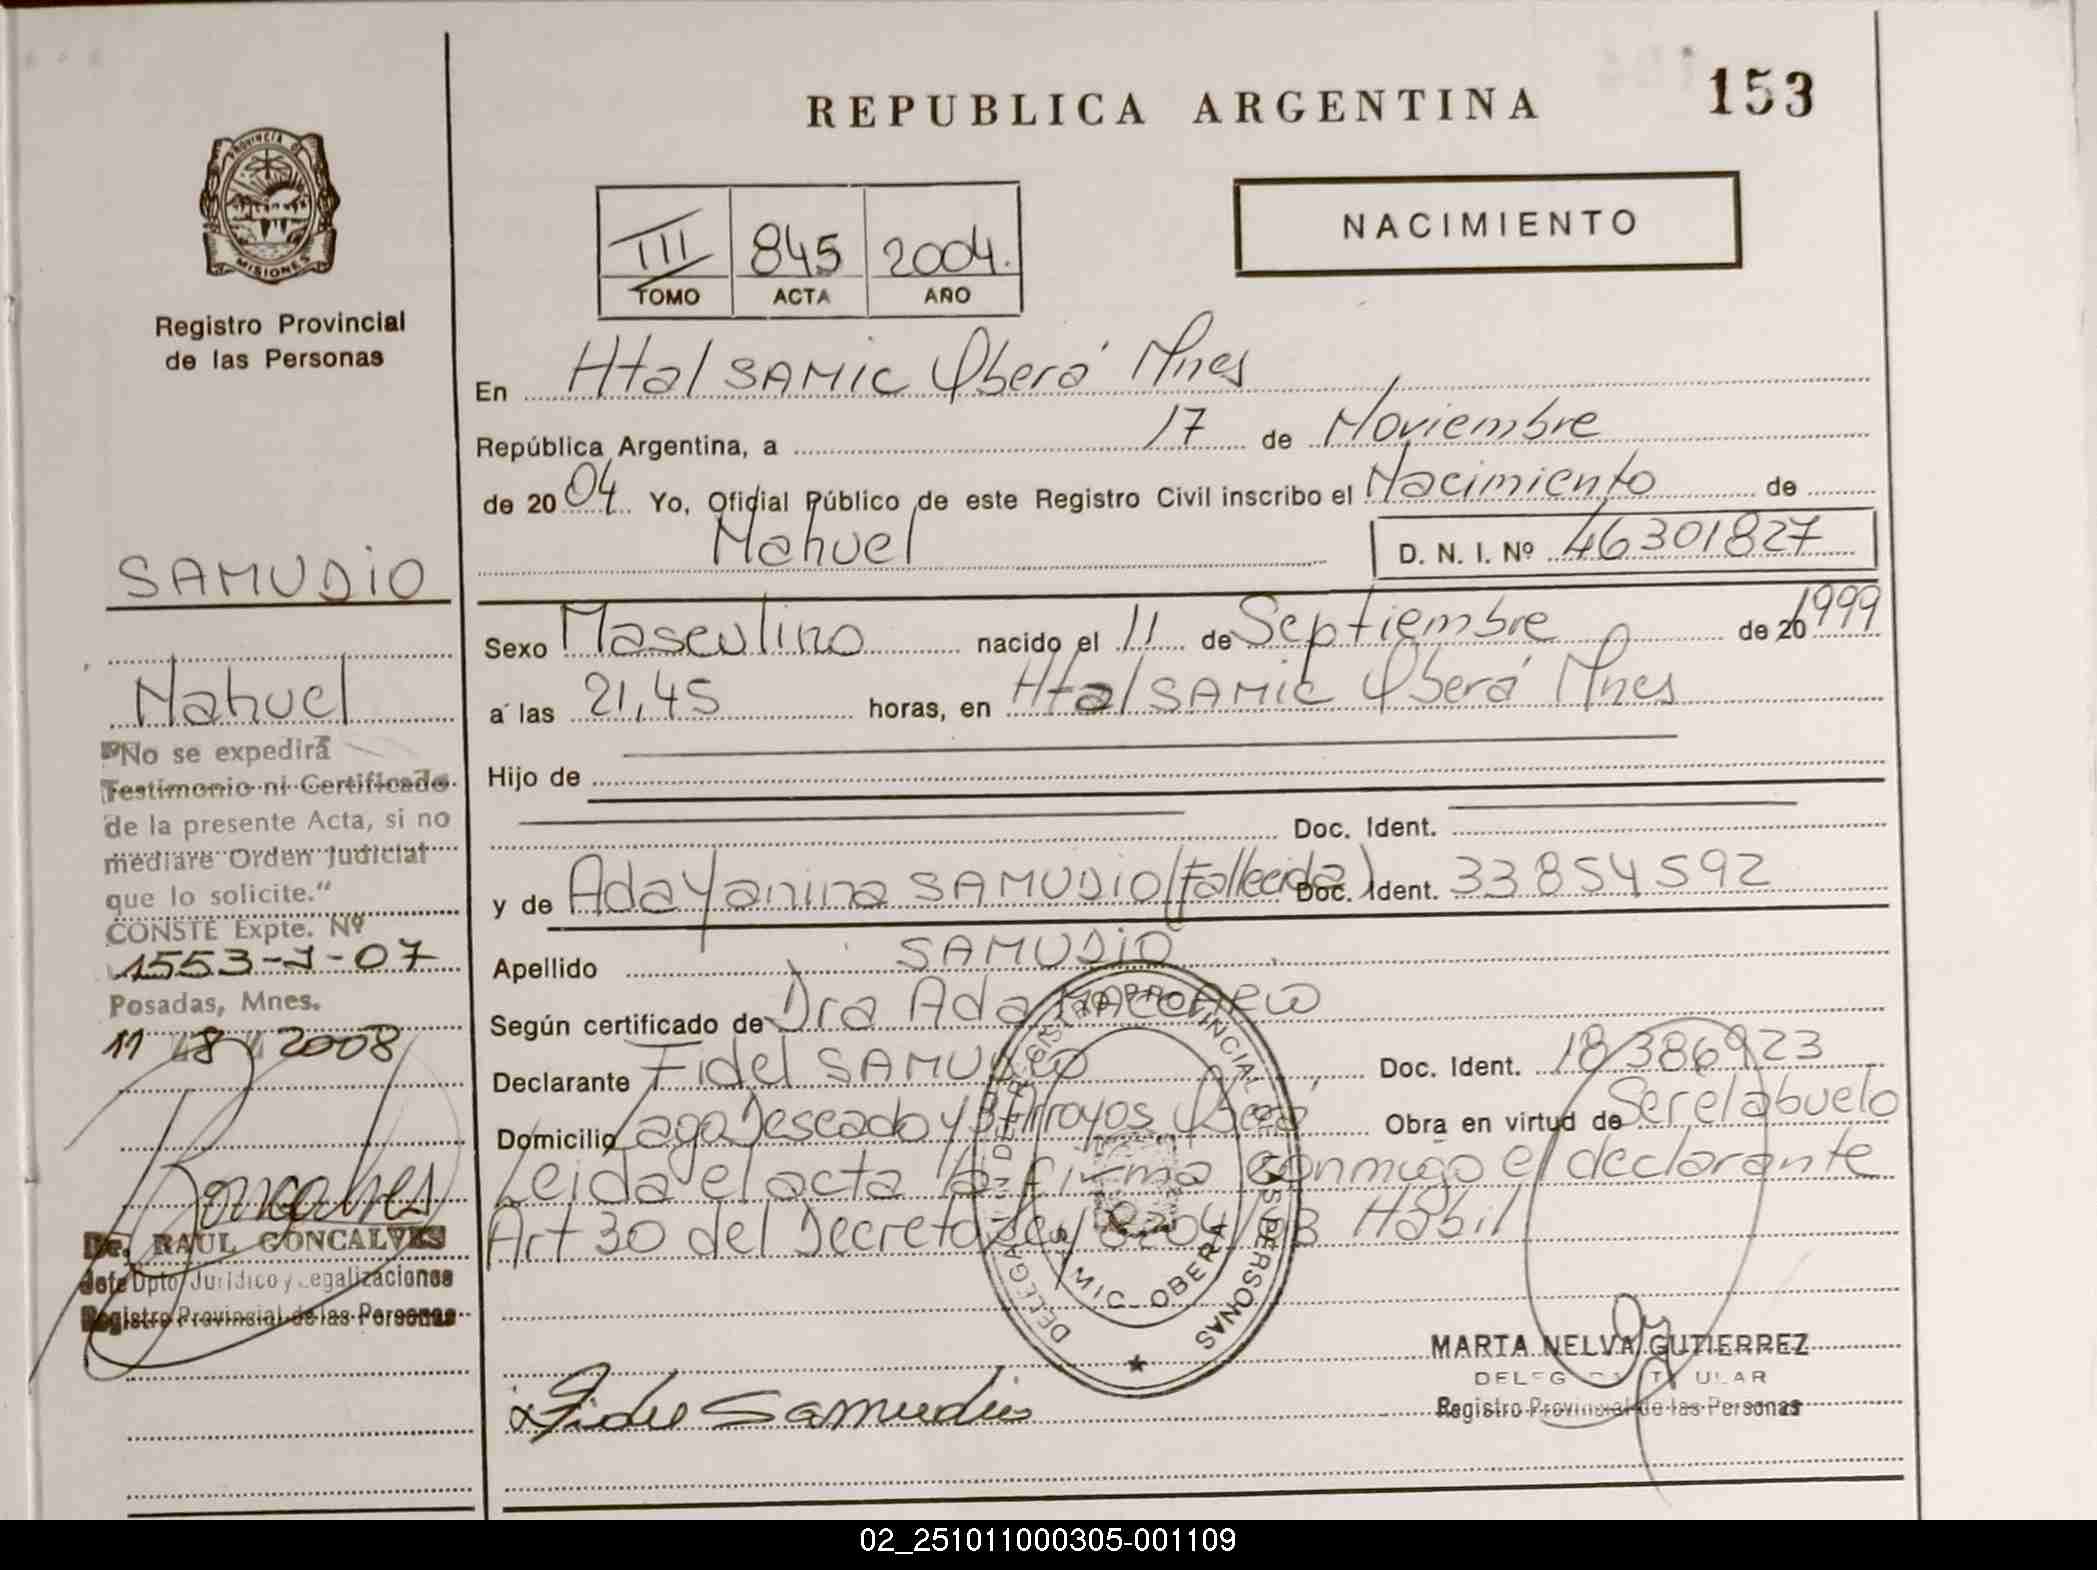 REPUBLICA ARGENTINA
153
PROVINCIA DE
MISIONES
Registro Provincial
de las Personas
III 845 2004.
TOMO ACTA AÑO
NACIMIENTO
En Htal SAMIC Oberá Mnes
República Argentina, a 17 de Noviembre
de 2004. Yo, Oficial Público de este Registro Civil inscribo el Nacimiento de
Nahuel
D. N. I. Nº 46301827
SAMUDIO
Nahuel
Sexo Masculino nacido el 11 de Septiembre de 20 1999
a las 21,45 horas, en Htal SAMIC Oberá Mnes
Hijo de
Doc. Ident.
y de Ada Yanina SAMUDIO (Fallecida) Doc. Ident. 33854592
Apellido SAMUDIO
Según certificado de Dra Ada
Declarante Fidel SAMUDIO Doc. Ident. 18386923
Domicilio Lago Deseado y Arroyos Oberá Obra en virtud de Ser el abuelo
Leida el acta la firma conmigo el declarante
Art 30 del Decreto Ley 8204/63 Hábil
"No se expedirá
Testimonio ni Certificado
de la presente Acta, si no
mediare Orden Judicial
que lo solicite."
CONSTE Expte. Nº
1553-J-07
Posadas, Mnes.
11 8 2008
Goncalves
Dr. RAUL GONCALVES
Jefe Dpto. Jurídico y Legalizaciones
Registro Provincial de las Personas
REGISTRO PROVINCIAL DE LAS PERSONAS
OBERA
Fidel Samudio
MARTA NELVA GUTIERREZ
DELEGADA TITULAR
Registro Provincial de las Personas
02_251011000305-001109